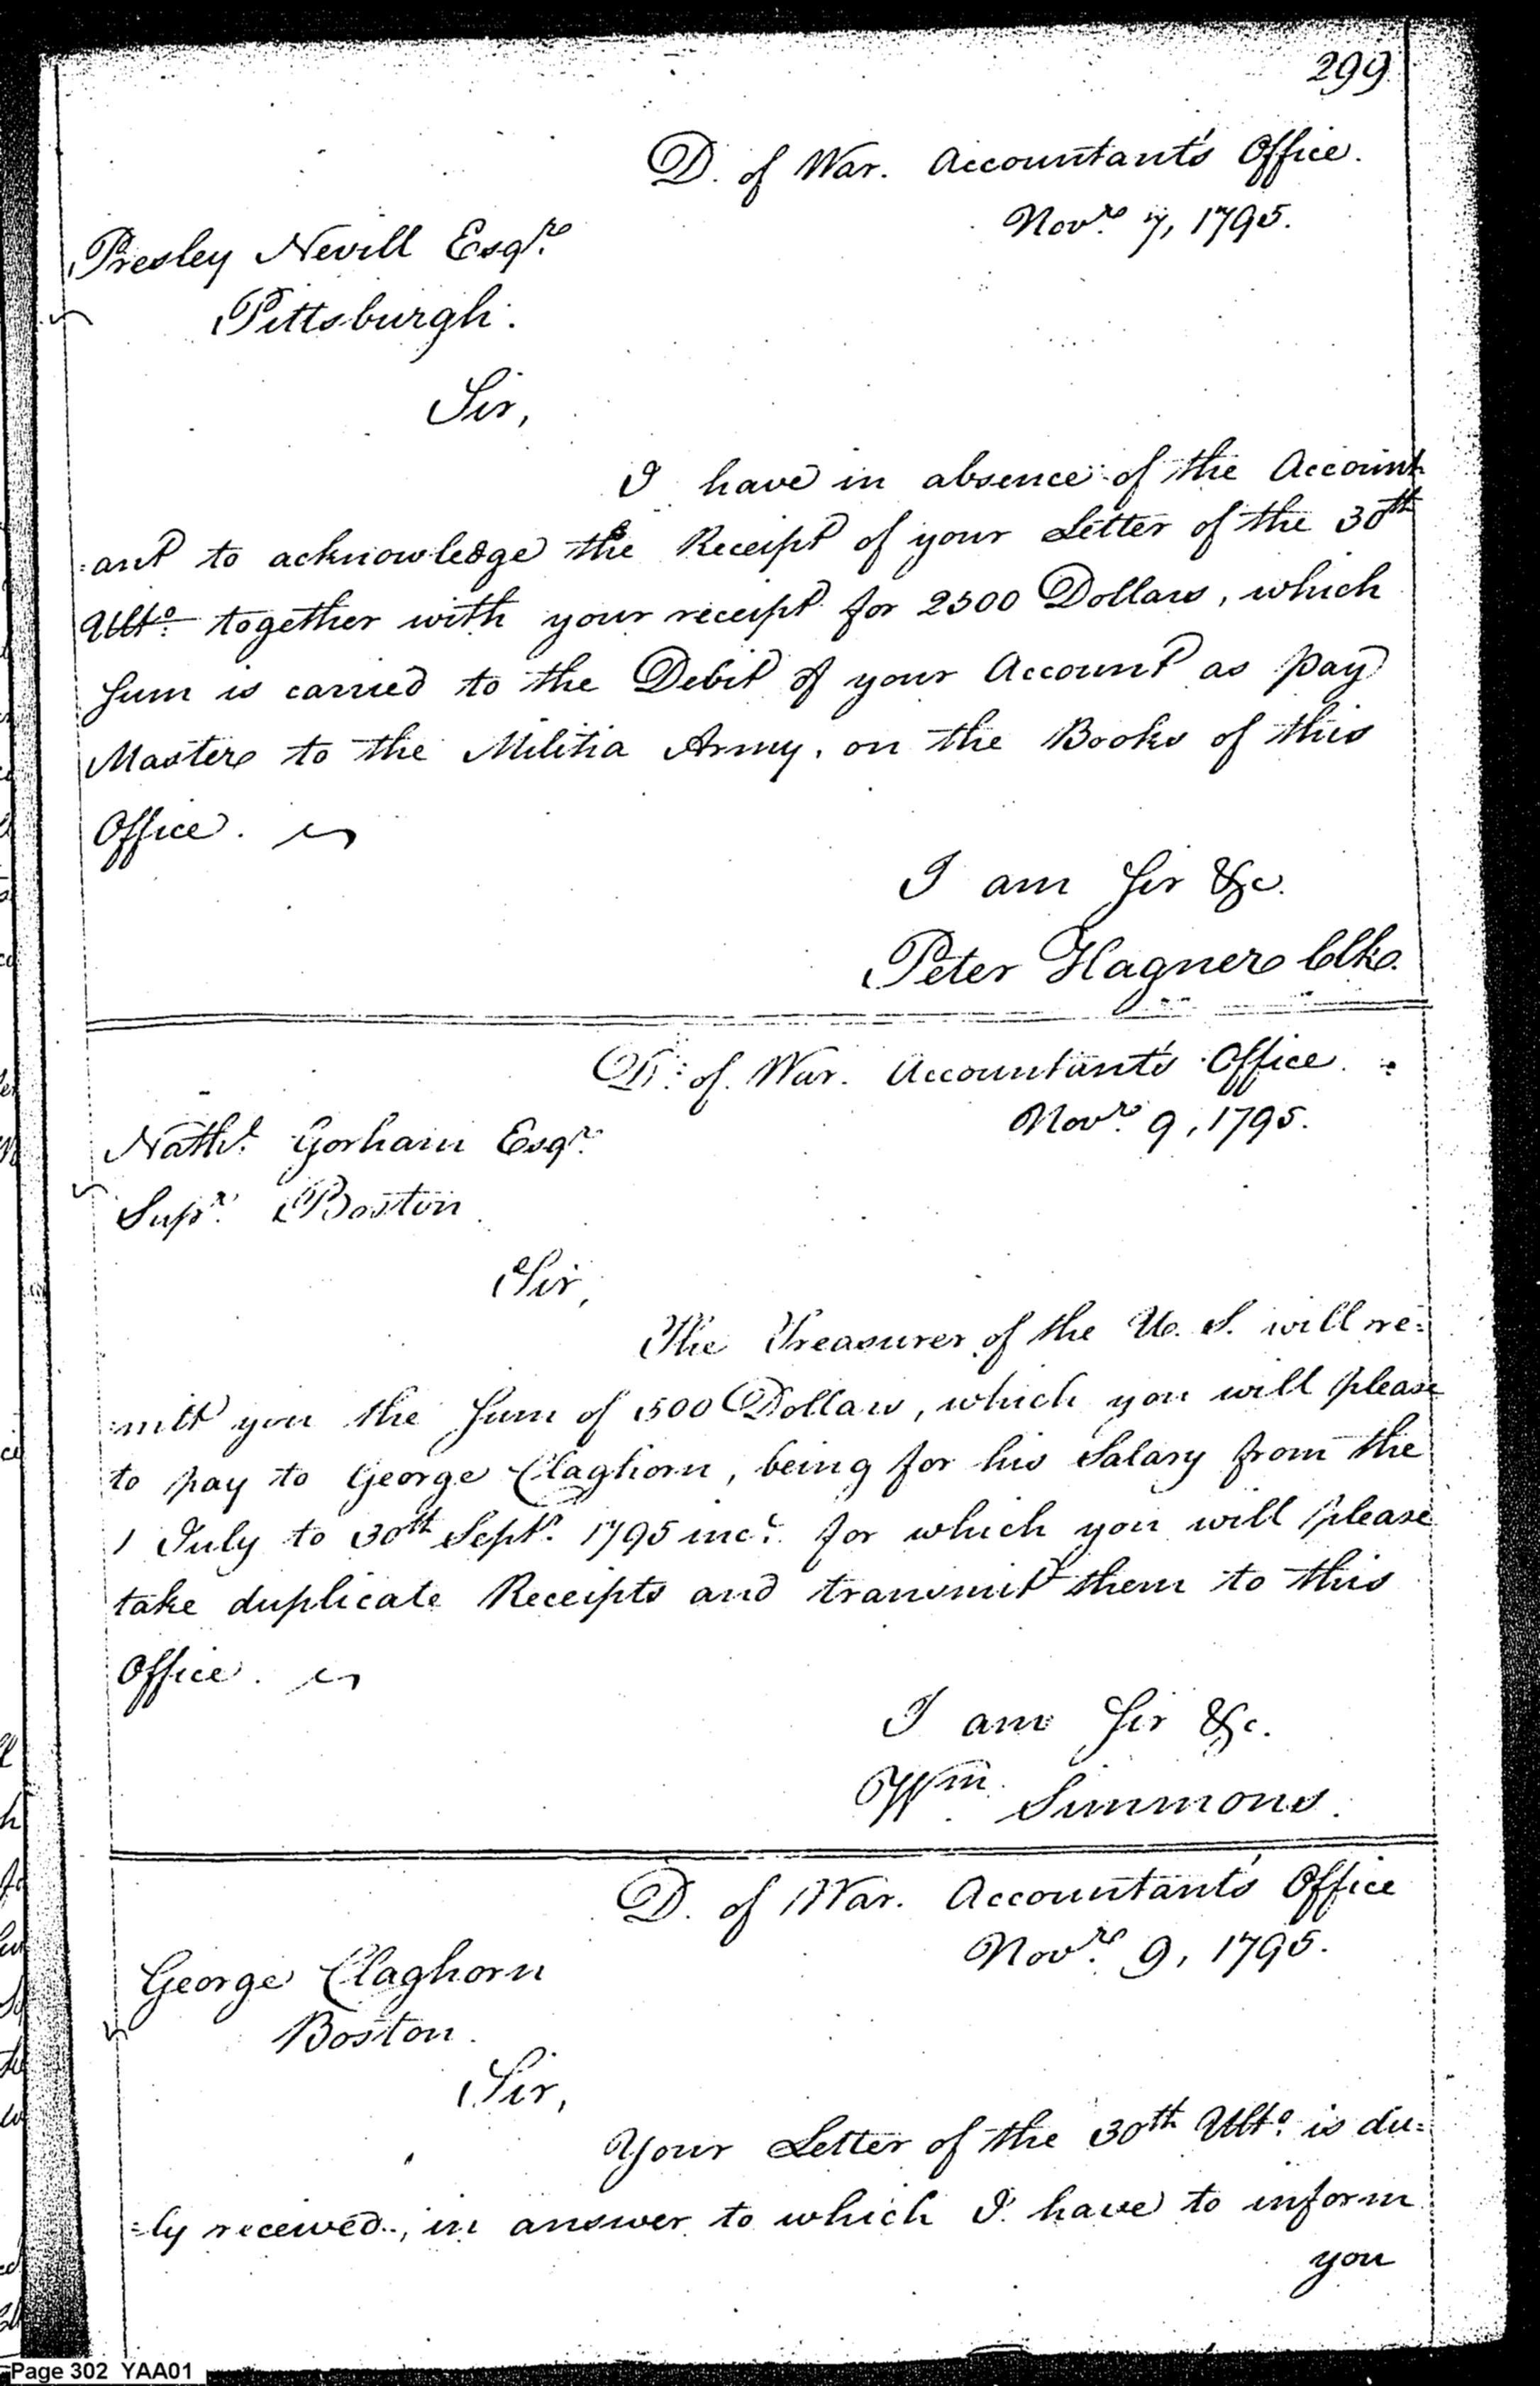 299
D. of War. Accountant's Office.
Novr. 7, 1795.
Presley Nevill Esqr.
Pittsburgh.
Sir,
I have in absence of the Account
=ant to acknowledge the Receipt of your Letter of the 30th
Ulto. together with your receipt for 2500 Dollars, which
Sum is carried to the Debit of your Account as Pay
Master to the Militia Army, on the Books of this
Office.
I am Sir &c.
Peter Hagner Clk.
D. of War. Accountant's Office.
Novr. 9, 1795.
Nathl. Gorham Esqr.
Supr. Boston
Sir,
The Treasurer of the U. S. will re=
=mitt you the Sum of 500 Dollars, which you will please
to pay to George Claghorn, being for his Salary from the
1 July to 30th Sept. 1795 inc. for which you will please
take duplicate Receipts and transmit them to this
Office.
I am Sir &c.
Wm. Simmons.
D. of War. Accountant's Office
Novr. 9, 1795.
George Claghorn
Boston.
Sir,
Your Letter of the 30th Ulto. is du=
=ly received, in answer to which I have to inform
you
Page 302 YAA01